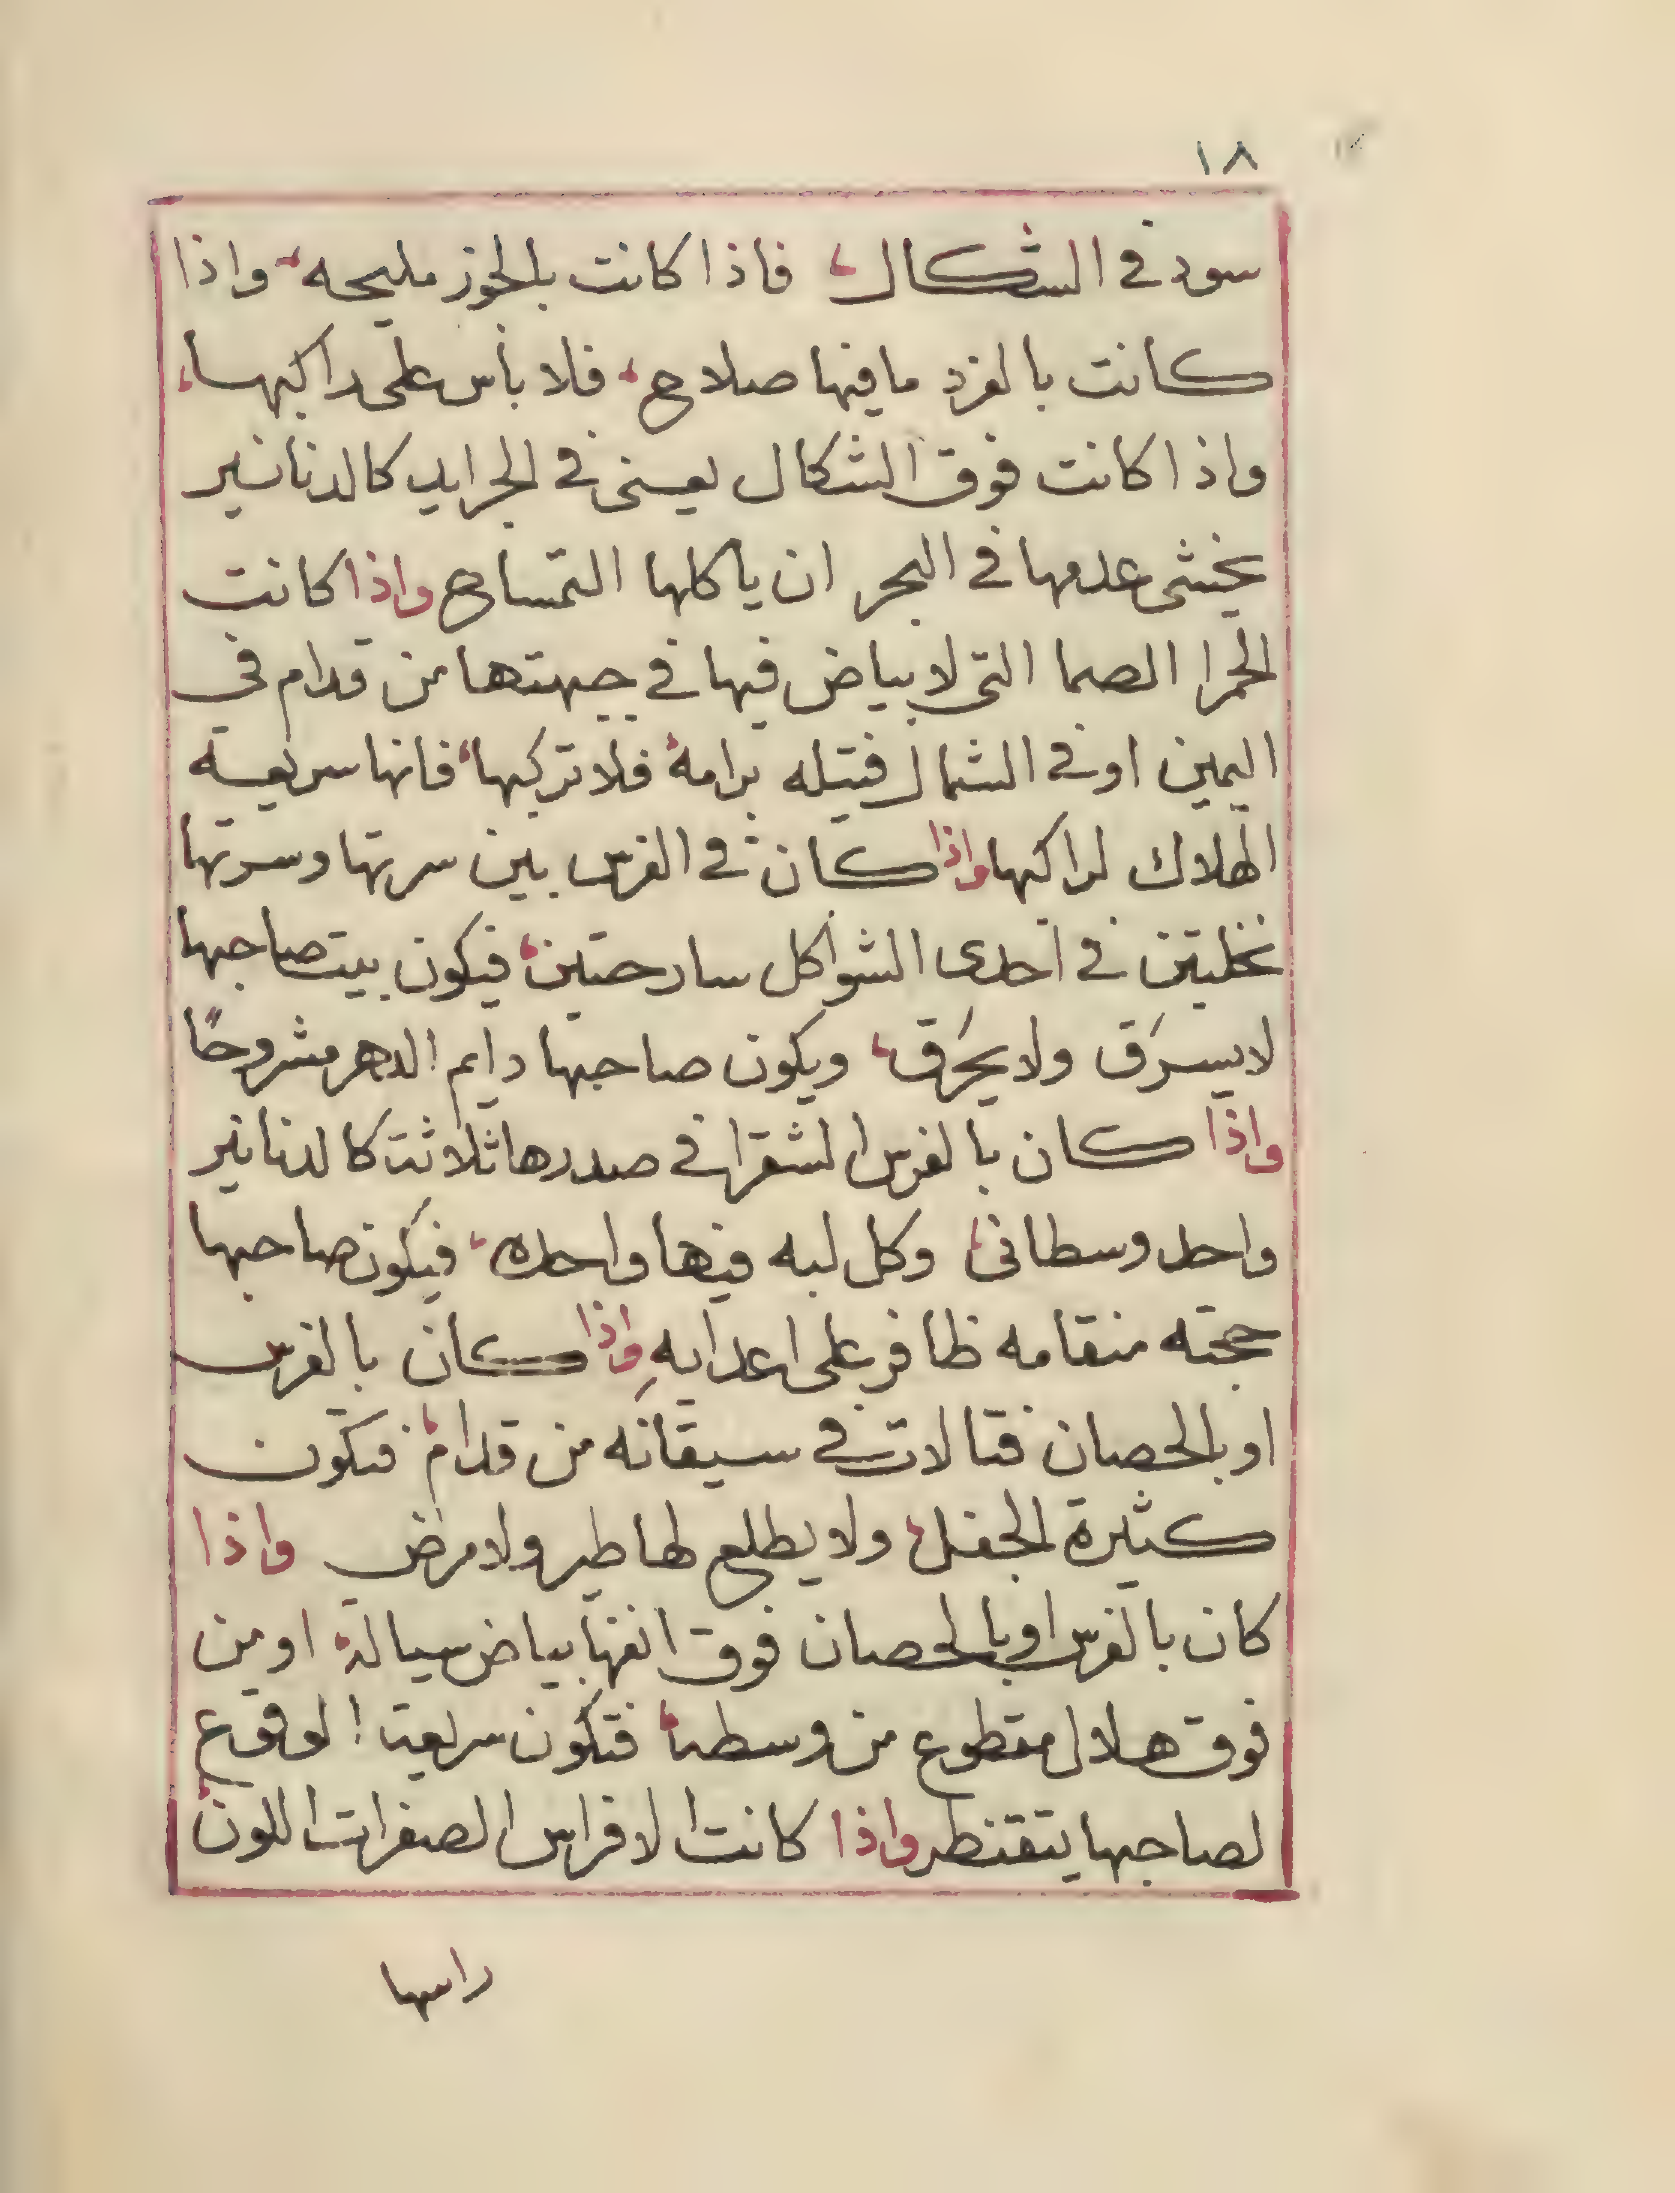 ١٨
سود في الشكال، فاذا كانت بالجوز مليحه، واذا
كانت بالفرد ما فيها صلاح، فلا بأس على راكبها،
واذا كانت فوق الشكال يعني في الجرايد كالدنانير
يخشى عدمها في البحر ان ياكلها التمساح واذا كانت
الحمرا الصما التى لا بياض فيها في جبهتها من قدام في
اليمين او في الشمال فتيله برامة، فلا تركبها، فانها سريعة
الهلاك لراكبها واذا كان في الفرس بين سرتها وسرتها
نخلتين في احدى الشواكل سارحتين، فيكون بيت صاحبها
لا يسرَق ولا يحرَق، ويكون صاحبها دايم الدهر مشروحًا
واذا كان بالفرس الشقرا في صدرها ثلاثة كالدنانير
واحد وسطاني، وكل لبه فيها واحده، فيكون صاحبها
حجته منقامه ظافر على اعدايهِ واذا كان بالفرس
او بالحصان فتالات في سيقانه من قدام، فتكون
كثيرة الجفل، ولا يطلع لها طير ولا مرض واذا
كان بالفرس او بالحصان فوق انفها بياض سيالة، او من
فوق هلال مقطوع من وسطه، فتكون سريعة الوقوع
لصاحبها يتقنطر واذا كانت الافراس الصفرات اللون،
راسها